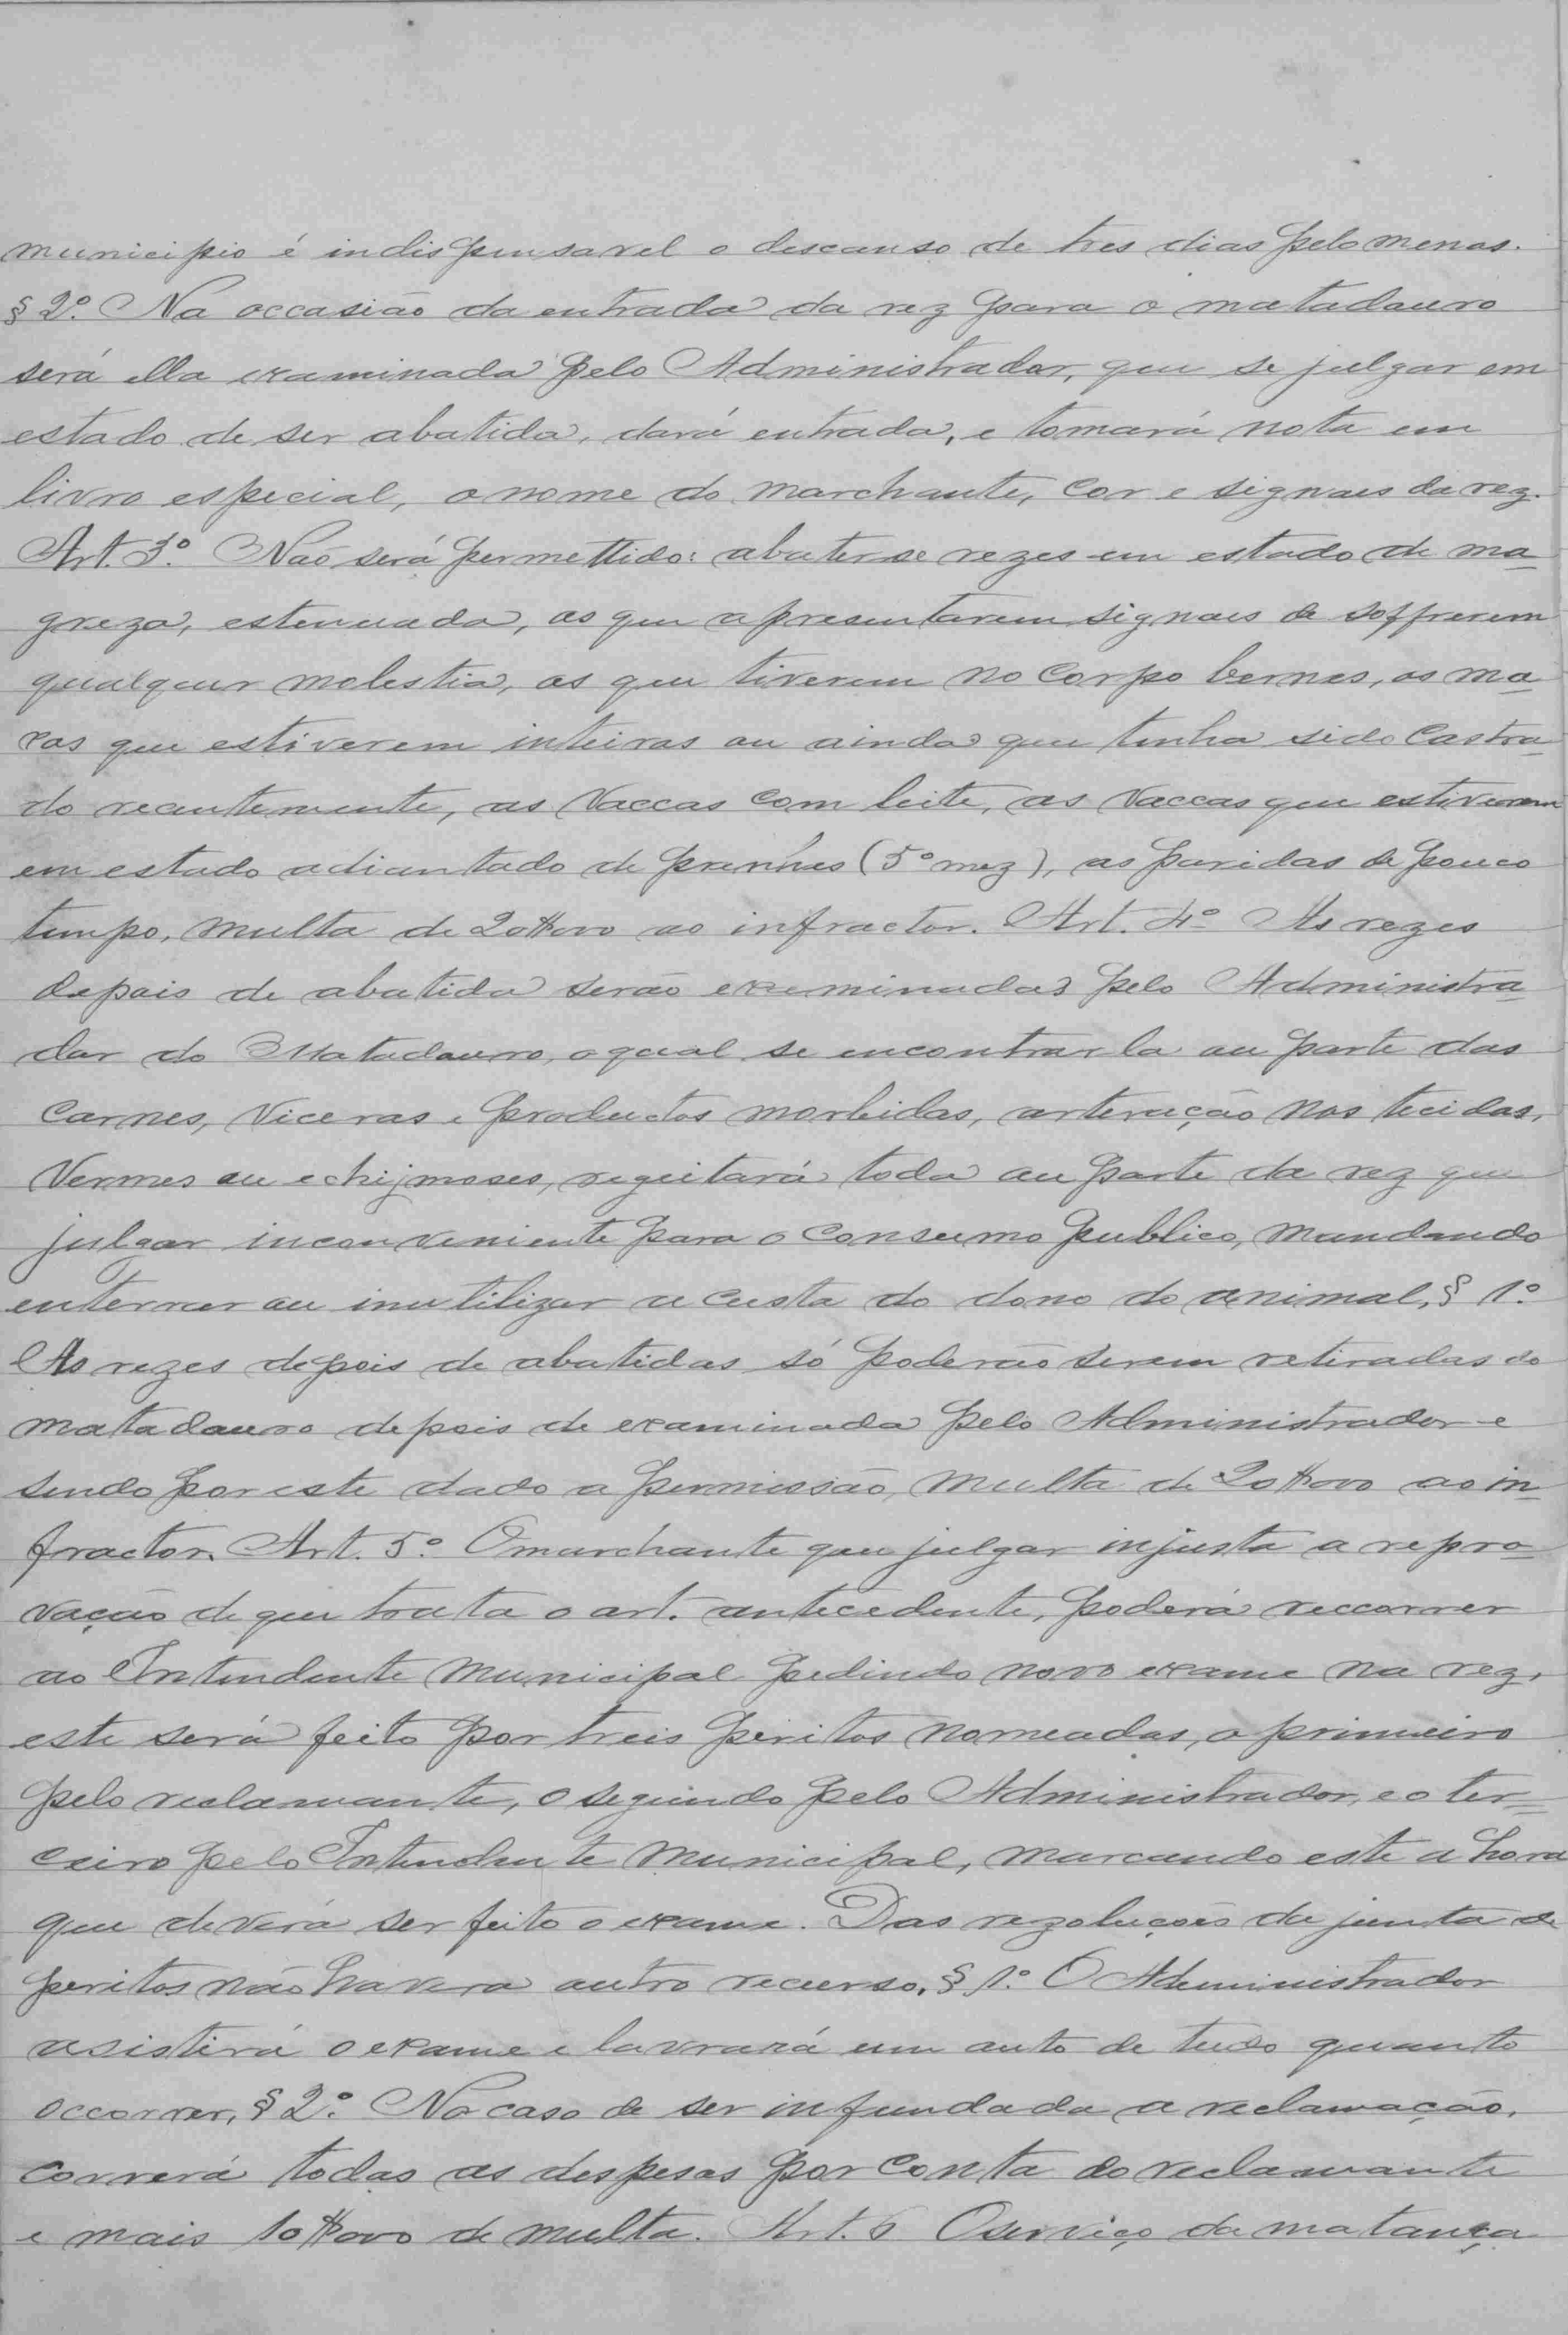 municipio é indispensavel o descanso de tres dias pelo menos.
§ 2º. Na occasião da entrada da rez para o matadouro
será ella examinada pelo Administrador, que se julgar em
estado de ser abatida, dará entrada, e tomará nota em
livro especial, o nome do marchante, cor e signaes da rez.
Art. 3º. Não será permettido: abater-se rezes em estado de ma-
greza, estenuada, as que apresentarem signaes de soffrerem
qualquer molestia, as que tiverem no corpo bernes, os ma-
cos que estiverem inteiras ou ainda que tenha sido castra-
do recentemente, as vaccas com leite, as vaccas que estiverem
em estado adiantado de prenhes (5º mez), as paridas de pouco
tempo, multa de 20$000 ao infractor. Art. 4º As rezes
depois de abatida serão examinadas pelo Administra-
dor do Matadouro, o qual se encontrar la ou parte das
carnes, viceras e productos morbidos, arteração nos tecidos,
vermes ou echijmoses, regeitará toda ou parte da rez que
julgar inconveniente para o consumo publico, mandando
enterrar ou inutilizar a custa do dono do animal, § 1º.
As rezes depois de abatidas só poderão serem retiradas do
matadouro depois de examinada pelo Administrador e
sendo por este dado a permissão, multa de 20$000 ao in-
fractor. Art. 5º. O marchante que julgar injusta a repro-
vação de que trata o art. antecedente, poderá reccorrer
ao Intendente Municipal pedindo novo exame na rez,
este será feito por treis peritos nomeados, o primeiro
pelo reclamante, o segundo pelo Administrador, e o ter-
ceiro pelo Intendente Municipal, marcando este a hora
que deverá ser feito o exame. Das rezoluções da junta de
peritos não havera outro recurso, § 1º. O Administrador
asistirá o exame e lavrará um auto de tudo quanto
occorrer, § 2º. No caso de ser infundada a reclamação,
correrá todas as despesas por conta do reclamante
e mais 10$000 de multa. Art. 6 O serviço da matança